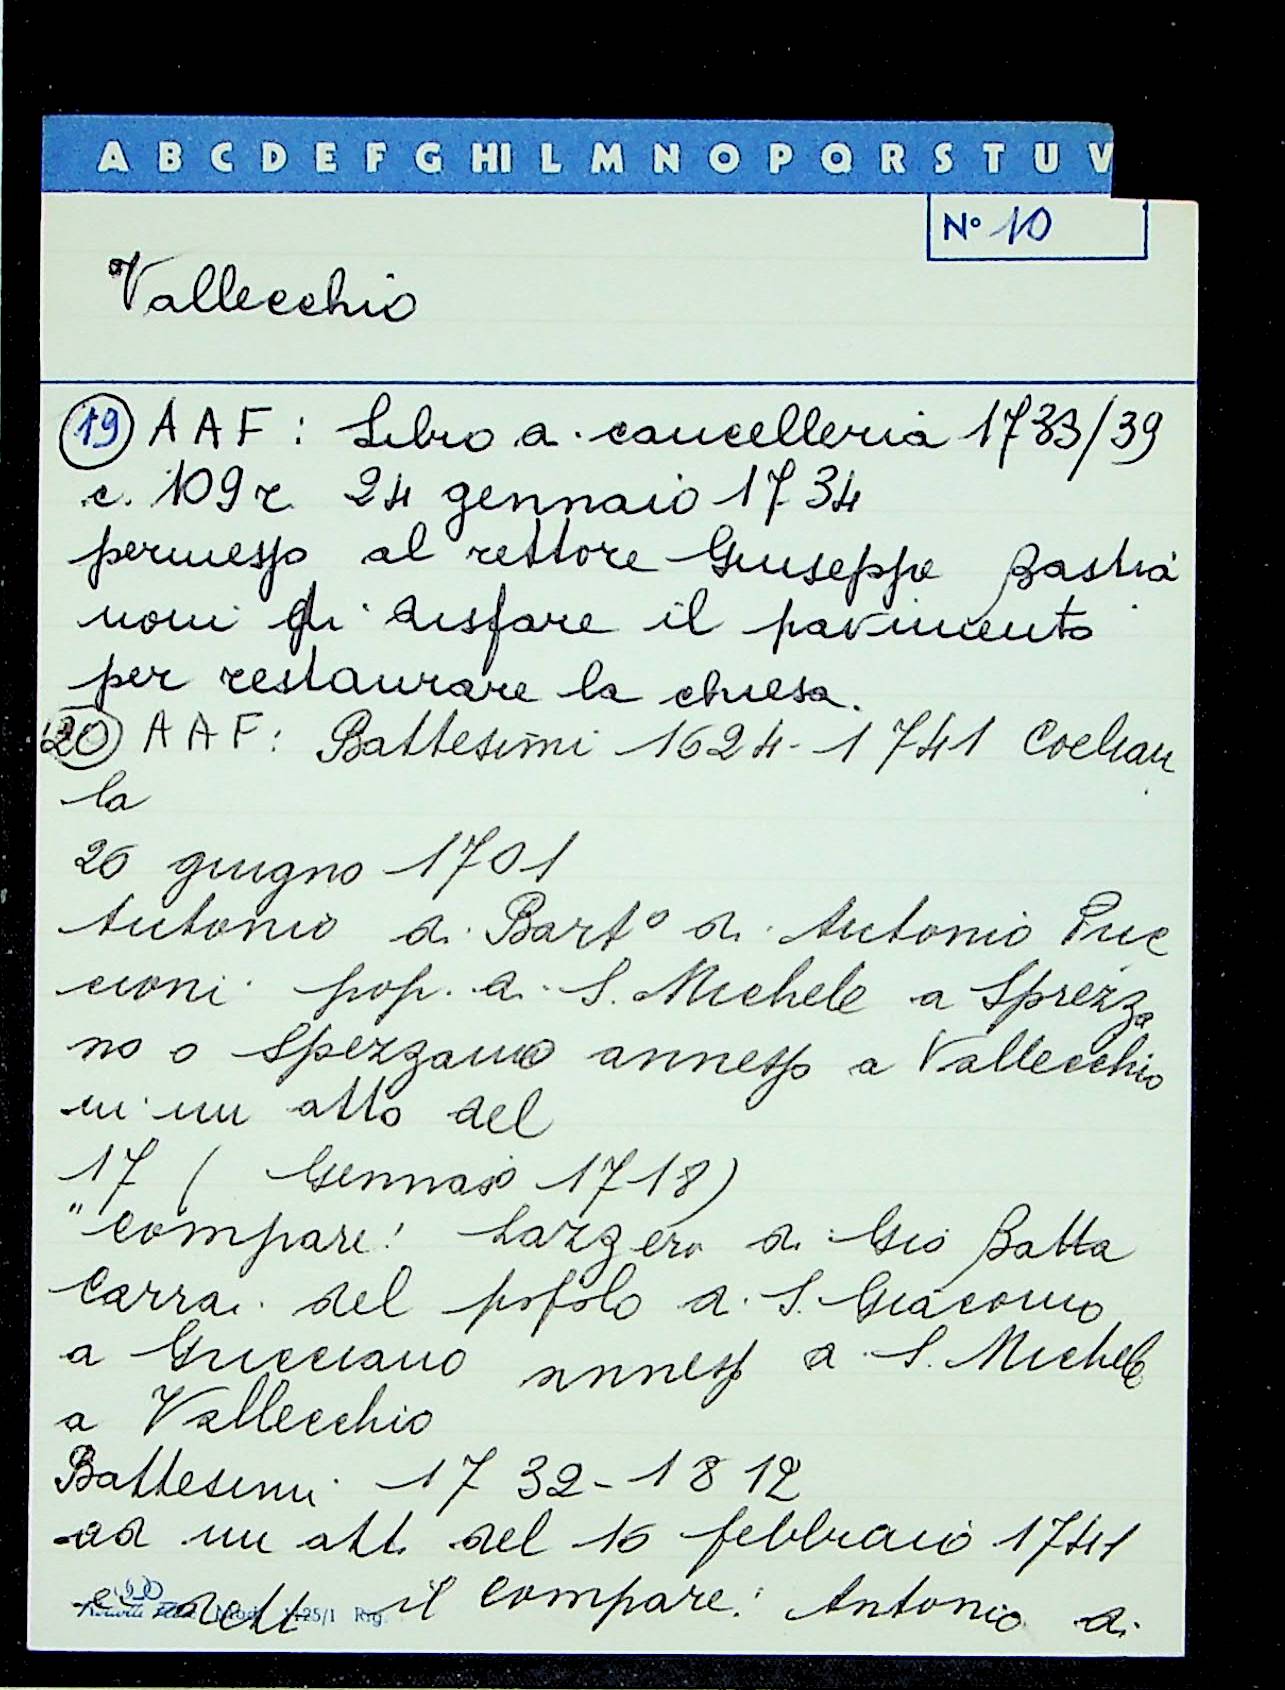 A B C D E F G HI L M N O P Q R S T U V
N° 10
Vallecchio
19 A A F : Libro di cancelleria 1733/39
c. 109 r. 24 gennaio 1734
permesso al rettore Giuseppe Bastia
noni di disfare il pavimento
per restaurare la chiesa.
20 A A F : Battesimi 1624-1741
la
26 giugno 1701
Antonio di Bart° di Antonio Puc
cioni pop. di S. Michele a Sprezza
no o Spezzano annesso a Vallecchio
in un atto del
17 ( Gennaio 1718)
"compare: Lazzero di Gio Batta
Carrai del popolo di S. Giacomo
a Gricciano annesso a S. Michele
a Vallecchio
Battesimi 1732-1812
ad un att. del 16 febbraio 1741
è dett il compare: Antonio di
Mod. 1125/1 Rig.